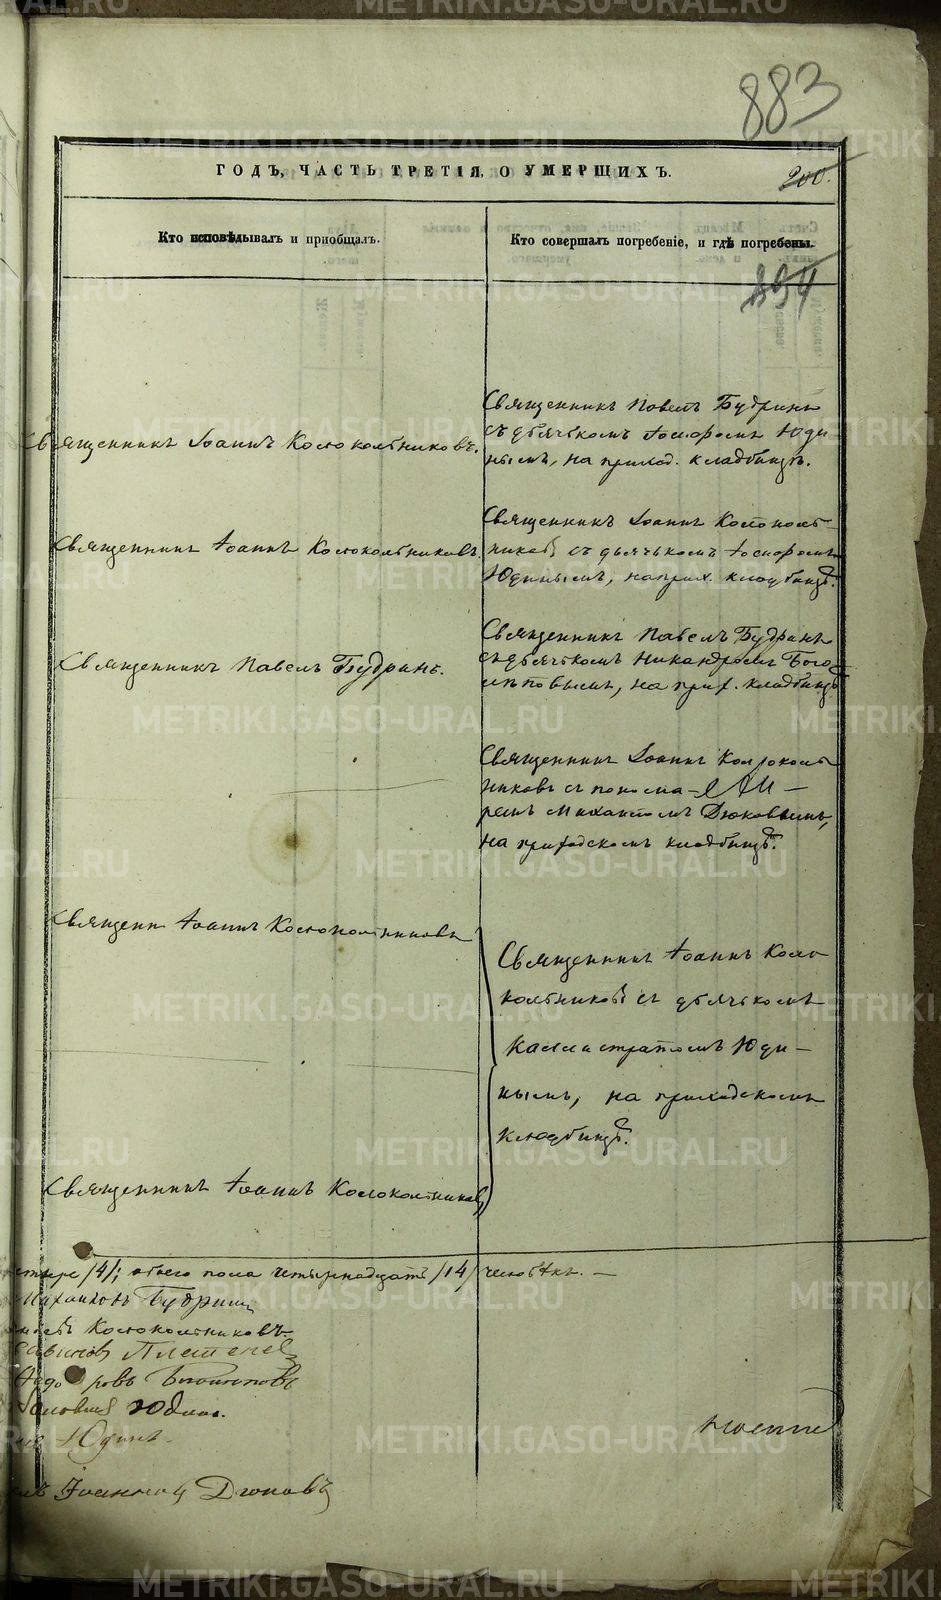 883
ГОДЪ, ЧАСТЬ ТРЕТІЯ, О УМЕРШИХЪ.
200.
Кто исповѣдывалъ и приобщалъ.
Кто совершалъ погребеніе, и гдѣ погребены.
894
Священникъ Іоаннъ Колокольниковъ.
Священникъ Павелъ Будринъ
съ дьячькомъ Юди
нымъ, на приход. кладбищѣ.
Священникъ Іоаннъ Колокольниковъ.
Священникъ Іоаннъ Колоколь
никовъ съ дьячькомъ
Юдинымъ, на прих. кладбищѣ.
Священникъ Павелъ Будринъ.
Священникъ Павелъ Будринъ
съ дьячькомъ Никандромъ Бого
лѣповымъ, на прих. кладбищѣ
Священникъ Іоаннъ Колоколь
никовъ съ понома-
ремъ Михаиломъ Дюковымъ,
на приходскомъ кладбищѣ.
Священни Іоаннъ Колокольниковъ
Священникъ Іоаннъ Коло
кольниковъ съ дьячькомъ
Каллистратомъ Юди-
нымъ, на приходскомъ
кладбищѣ.
Священникъ Іоаннъ Колокольниковъ
четыре /4/; обоего пола четырнадцать /14/ человѣкъ. —
Михаиловъ Будринъ
Колокольниковъ
Юдинъ.
Юдинъ.
Іоанновъ Дюковъ
METRIKI.GASO-URAL.RU